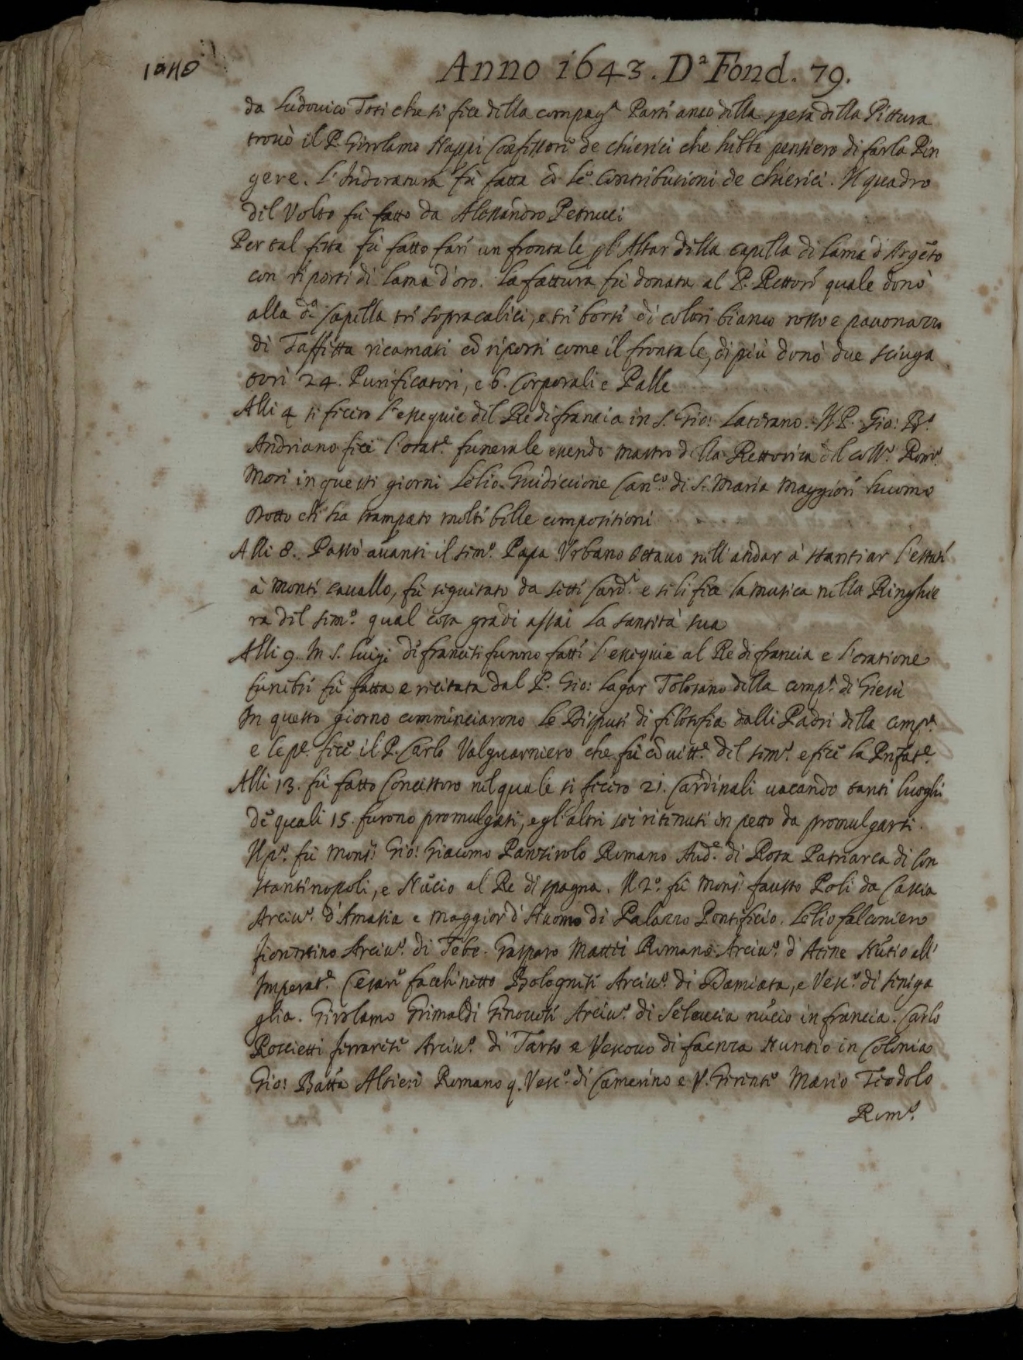 Anno 1643. Dª Fond. 79.
da Ludovico Toti che si fece della compagª Parti anco della spesa della Pittura
trovò il P. Girolamo Nappi Confessore de chierici che hebbe pensiero di farla Pin
gere. L'Indoratura fù fatta cō le contributioni de chierici. Il quadro
del Volto fù fatto da Alessandro Petrucci
Per tal festa fù fatto fare un frontale pl' Altar della capella di lama d'Argēto
con riporti di lama d'oro. la fattura fù donata al P. Rettore quale donò
alla dª Capella tre sopracalici, e tre borse di colori bianco rosso e pavonazzo
di Taffitta ricamati cō riporti come il frontale, di più donò due sciuga
tori 24. Purificatori, e 6. Corporali e Palle
Alli 4 si fecero l'essequie del Re di francia in S. Gio: Laterano. Il P. Gio: Bª
Andriano fece l'oratᵉ funerale essendo mastro della Rettorica del collº Romº
Morì in questi giorni Lelio Guidiccione Canᶜᵒ di S. Maria Maggiore huomo
dotto che ha stampato molte belle compositioni
Alli 8. Passò avanti il semº Papa Urbano Ottavo nell'andar à stantiar l'estate
à monte cavallo, fù seguitato da sette Cardˡ e si li fece la musica nella Ringhie
ra del semº qual cosa gradì assai la santità sua
Alli 9. In S. Luigi de francesi furno fatte l'essequie al Re di francia e l'oratione
funebre fù fatta e recitata dal P. Gio: Lagar Tolosano della compª di Giesù
In questo giorno comminciarono le Dispute di filosofia dalli Padri della compª
e le pᵉ fece il P. Carlo Valguarniero che fù cōvittᵉ del semº e fece la Prefatᵉ
Alli 13. fù fatto Concistoro nel quale si fecero 21. Cardinali vacando tanti luoghi
de quali 15. furono promulgati, e gl'altri sei ritenuti in petto da promulgarsi.
Il pº fù Monsʳ Gio: Giacomo Panzirolo Romano Audᵉ di Rota Patriarca di Con
stantinopoli, e Nūcio al Re di spagna. Il 2º fù Monsʳ fausto Poli da Cascia
Arcivº d'Amasia e Maggiord'Huomo di Palazzo Pontificio. Lelio falconiero
fiorentino Arcivº di Tebe. Gasparo Mattei Romano Arcivº d'Atene Nūtio all'
Imperatᵉ. Cesare facchinetto Bolognese Arcivº di Damiata, e Vescº di siniga
glia. Girolamo Grimaldi Genovese Arcivº di Seleucia nūcio in francia. Carlo
Rossetti ferrarese Arcivº di Tarso e Vescovo di faenza Nuntio in Colonia
Gio: Batta Altieri Romano q. Vescº di Camerino e V. Gerente Mario Teodolo
Romº